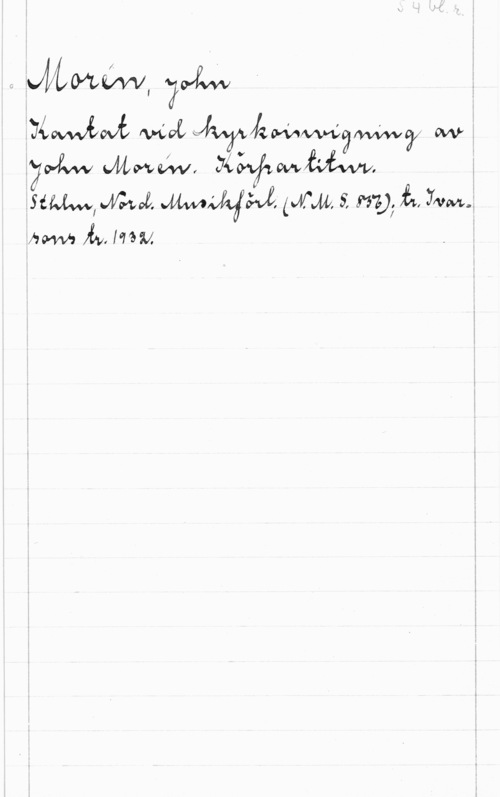 S 4 bl. r.
Morén, John
Kantat vid kyrkoinvigning av
John Morén. Körpartitur.
Sthlm, Nord. Musikförl. (N.M.S. ); tr. Ivar-
sons tr. 1932.